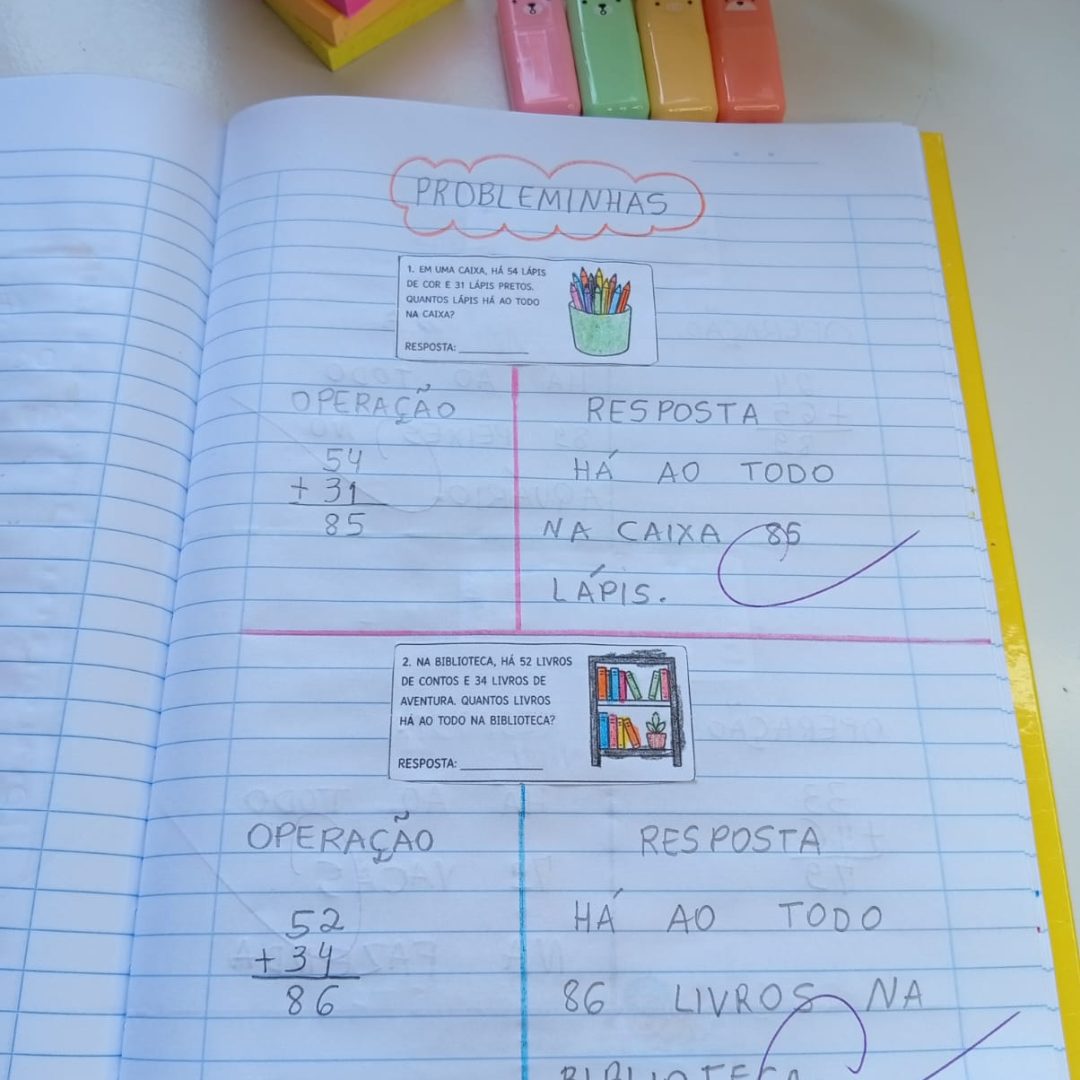 PROBLEMINHAS
1. EM UMA CAIXA, HÁ 54 LÁPIS
DE COR E 31 LÁPIS PRETOS.
QUANTOS LÁPIS HÁ AO TODO
NA CAIXA?
RESPOSTA: ____________
OPERAÇÃO
54
+ 31
85
RESPOSTA
HÁ AO TODO
NA CAIXA 85
LÁPIS.
2. NA BIBLIOTECA, HÁ 52 LIVROS
DE CONTOS E 34 LIVROS DE
AVENTURA. QUANTOS LIVROS
HÁ AO TODO NA BIBLIOTECA?
RESPOSTA: ____________
OPERAÇÃO
52
+ 34
86
RESPOSTA
HÁ AO TODO
86 LIVROS NA
BIBLIOTECA